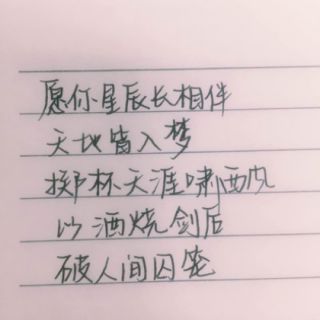 愿你星辰长相伴
天地皆入梦
掷杯天涯啸西风
以酒烧剑后
破人间囚笼